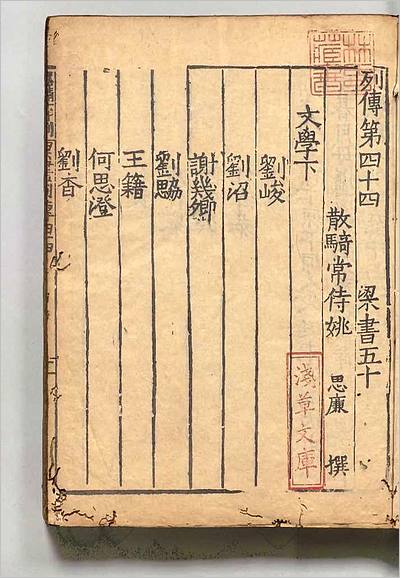 列傳第四十四 梁書五十
散騎常侍姚 思廉 撰
文學下
劉峻
劉沼
謝幾卿
劉勰
王籍
何思澄
劉杳
淺草文庫